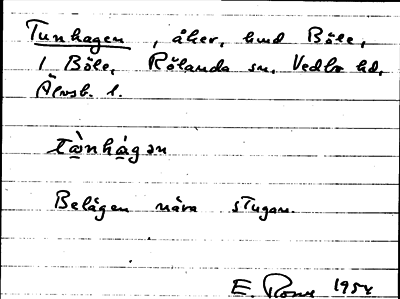 Tunhagen, åker, hmd Böle,
1 Böle, Rölanda sn, Vedbo hd,
Älvsb. l.
tànhágən
Belägen nära stugan.
E. 1954